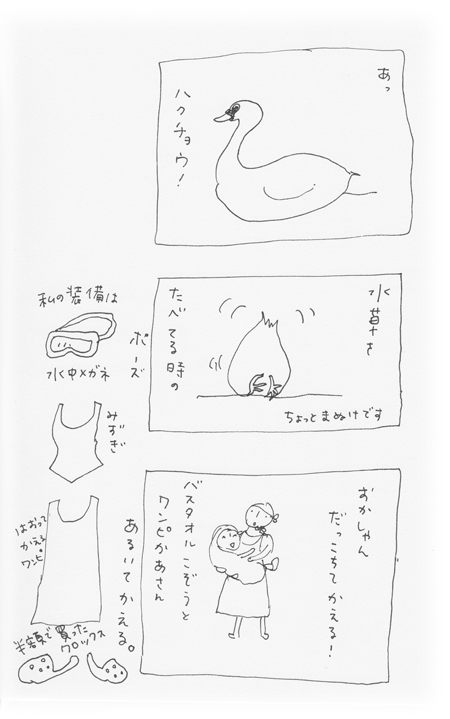 あっ
ハクチョウ!
水草を
たべてる時の
ポーズ
ちょっとまぬけです
おかしゃん
だっこちてかえる!
バスタオルこぞうと
ワンピかあさん
あるいてかえる。
私の装備は
水中メガネ
みずぎ
はおって
かえる
ワンピ
半額で買った
クロックス